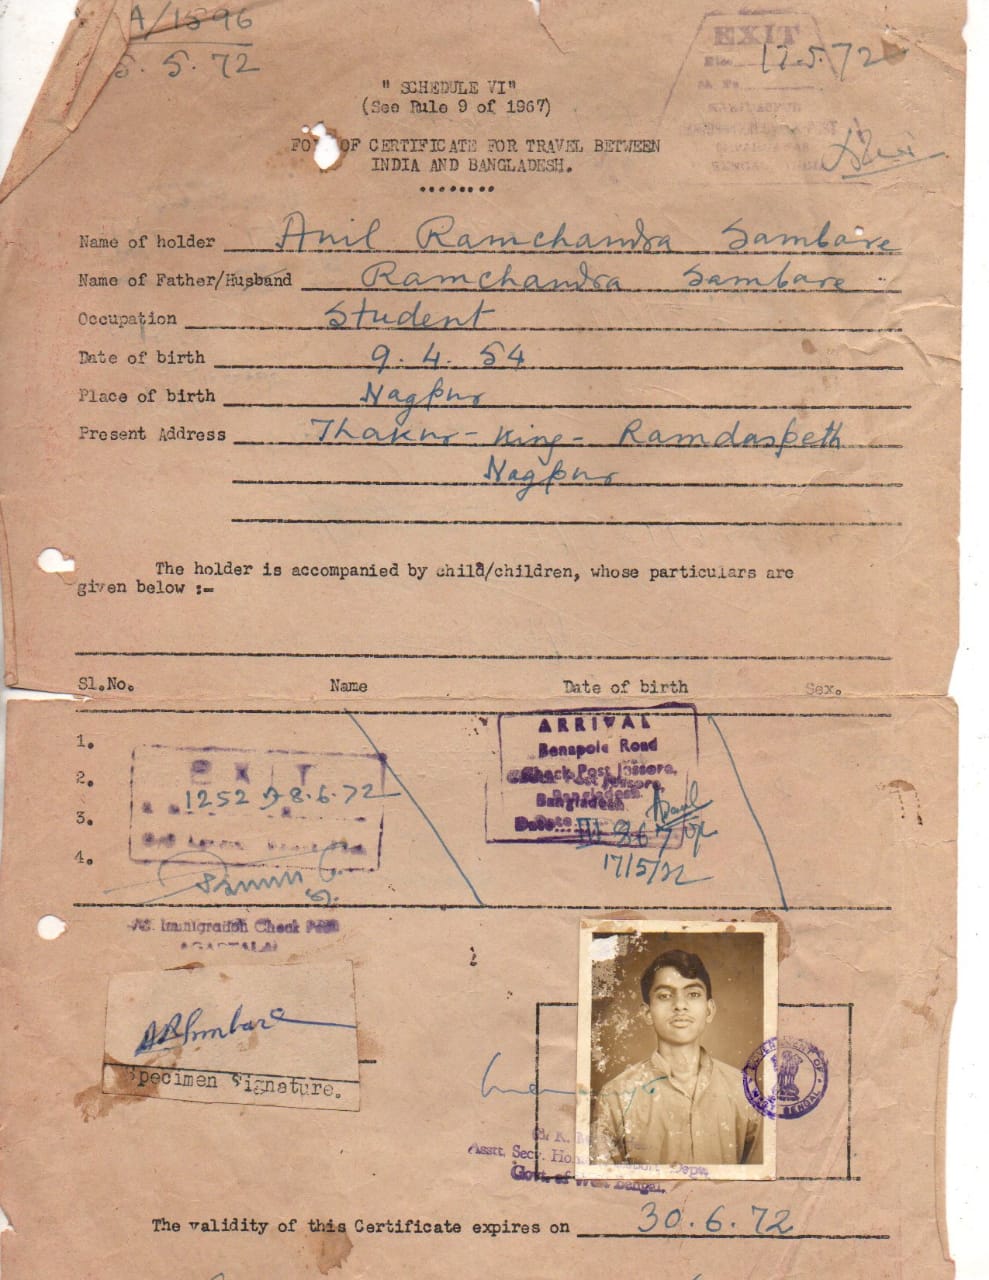 A/1896
5.5.72
EXIT
17.5.72
" SCHEDULE VI"
(See Rule 9 of 1967)
OF CERTIFICATE FOR TRAVEL BETWEEN
INDIA AND BANGLADESH.
Name of holder Anil Ramchandra Sambare
Name of Father/Husband Ramchandra Sambare
Occupation Student
Date of birth 9.4.54
Place of birth Nagpur
Present Address Thakur-King- Ramdaspeth
Nagpur
The holder is accompanied by child/children, whose particulars are
given below :-
Sl.No. Name Date of birth Sex.
1.
2.
3.
4.
ARRIVAL
Benapole Road
Check Post Jessore,
Bangladesh.
Date
17/5/72
EXIT
1252 D-8.6.72
Immigration Check Post
AGARTALA
ARSambare
Specimen Signature.
GOVERNMENT OF
WEST BENGAL
Asstt. Secy. Home Dept.
Govt. of West Bengal.
The validity of this Certificate expires on 30.6.72